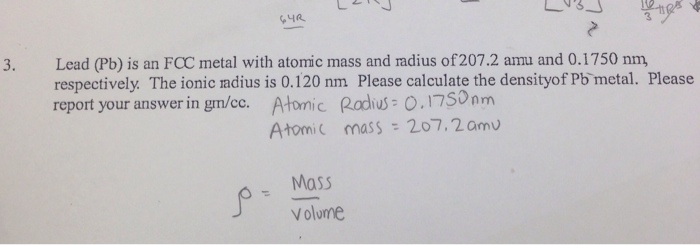 64R
3.
Lead (Pb) is an FCC metal with atomic mass and radius of 207.2 amu and 0.1750 nm,
respectively. The ionic radius is 0.120 nm. Please calculate the densityof Pb metal. Please
report your answer in gm/cc. Atomic Radius= 0.1750nm
Atomic mass = 207.2amu
ρ = Mass
Volume